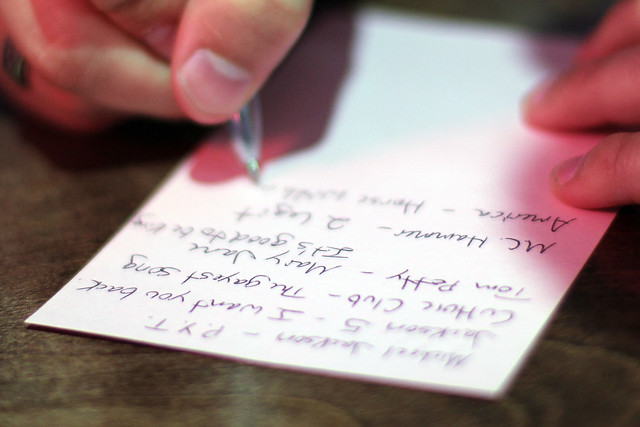 Michael Jackson - P.Y.T.
Jackson 5 - I want you back.
Culture Club - The gayest song
Tom Petty - Mary Jane
It's good to be king
MC. Hammer - 2 Legit
America - Horse